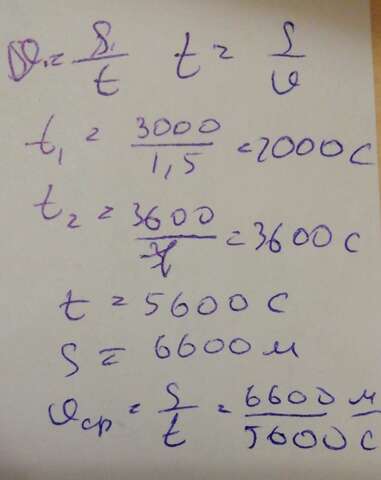 υ₁ = S₁/t   t = S/υ
t₁ = 3000/1,5 = 2000 с
t₂ = 3600/1 = 3600 с
t = 5600 с
S = 6600 м
υср = S/t = 6600 м/5600 с